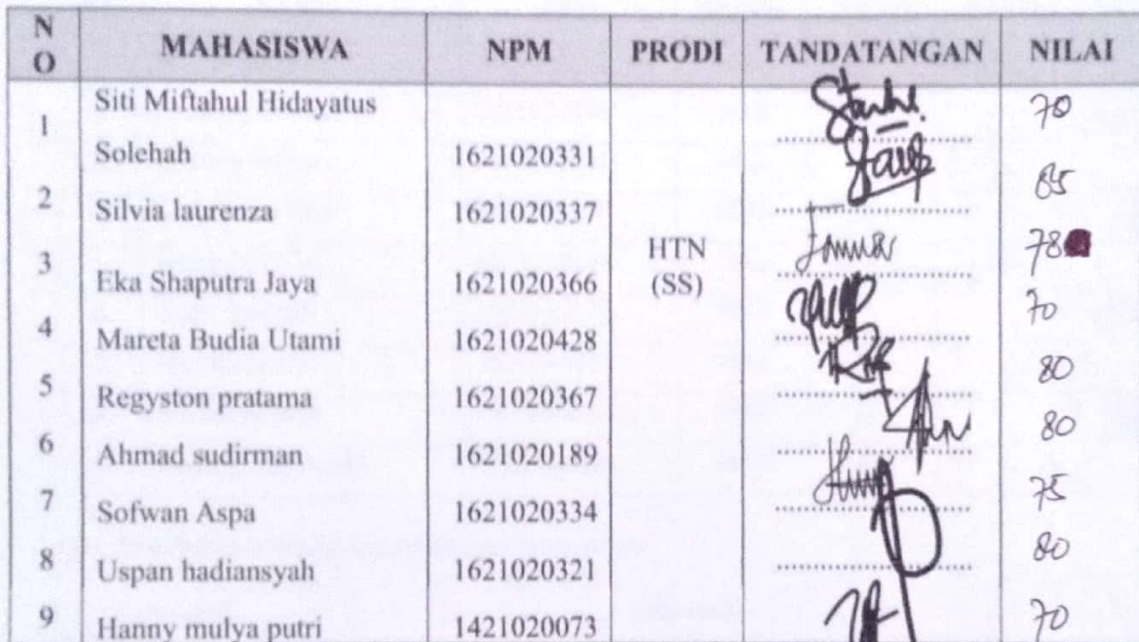 NO MAHASISWA NPM PRODI TANDATANGAN NILAI
Siti Miftahul Hidayatus 70
1
Solehah 1621020331
85
2
Silvia laurenza 1621020337
HTN 78
3
Eka Shaputra Jaya 1621020366 (SS)
70
4
Mareta Budia Utami 1621020428
80
5
Regyston pratama 1621020367
80
6
Ahmad sudirman 1621020189
75
7
Sofwan Aspa 1621020334
80
8
Uspan hadiansyah 1621020321
9 70
Hanny mulya putri 1421020073